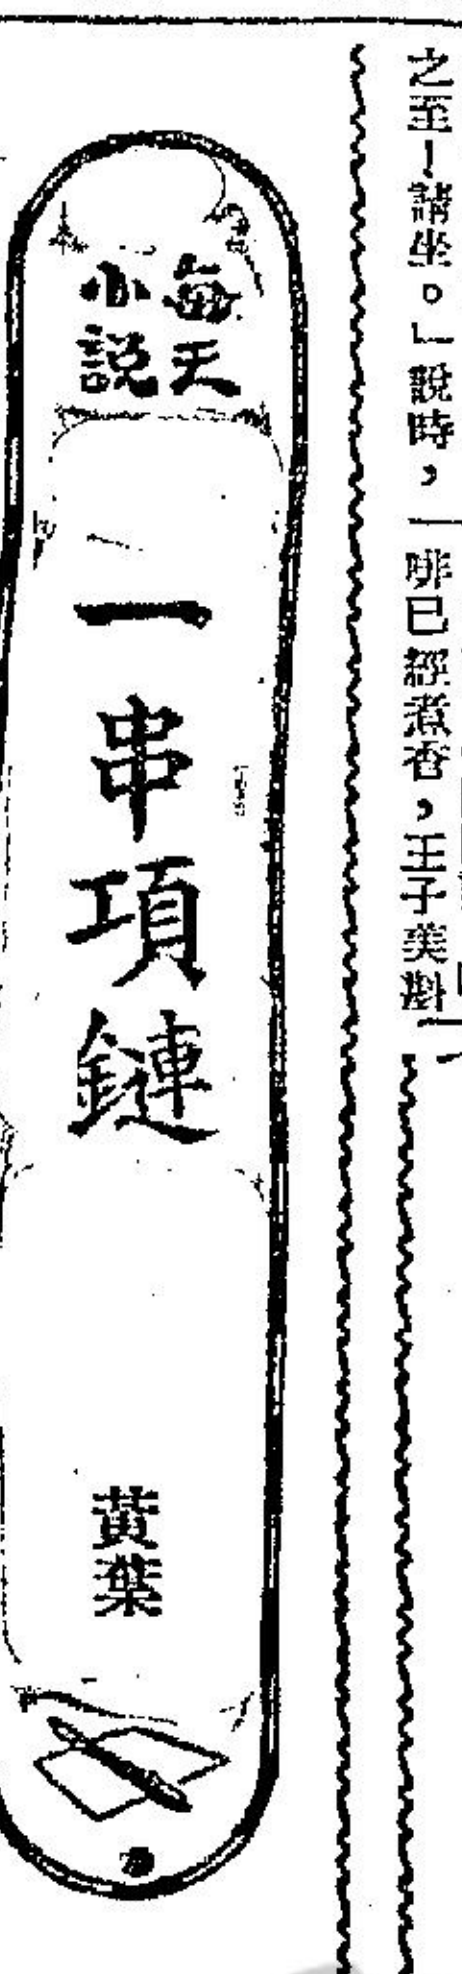 之至！請坐。」說時，
啡已經煮香，王子美斟
每天
小說
一串項鏈
黃葉